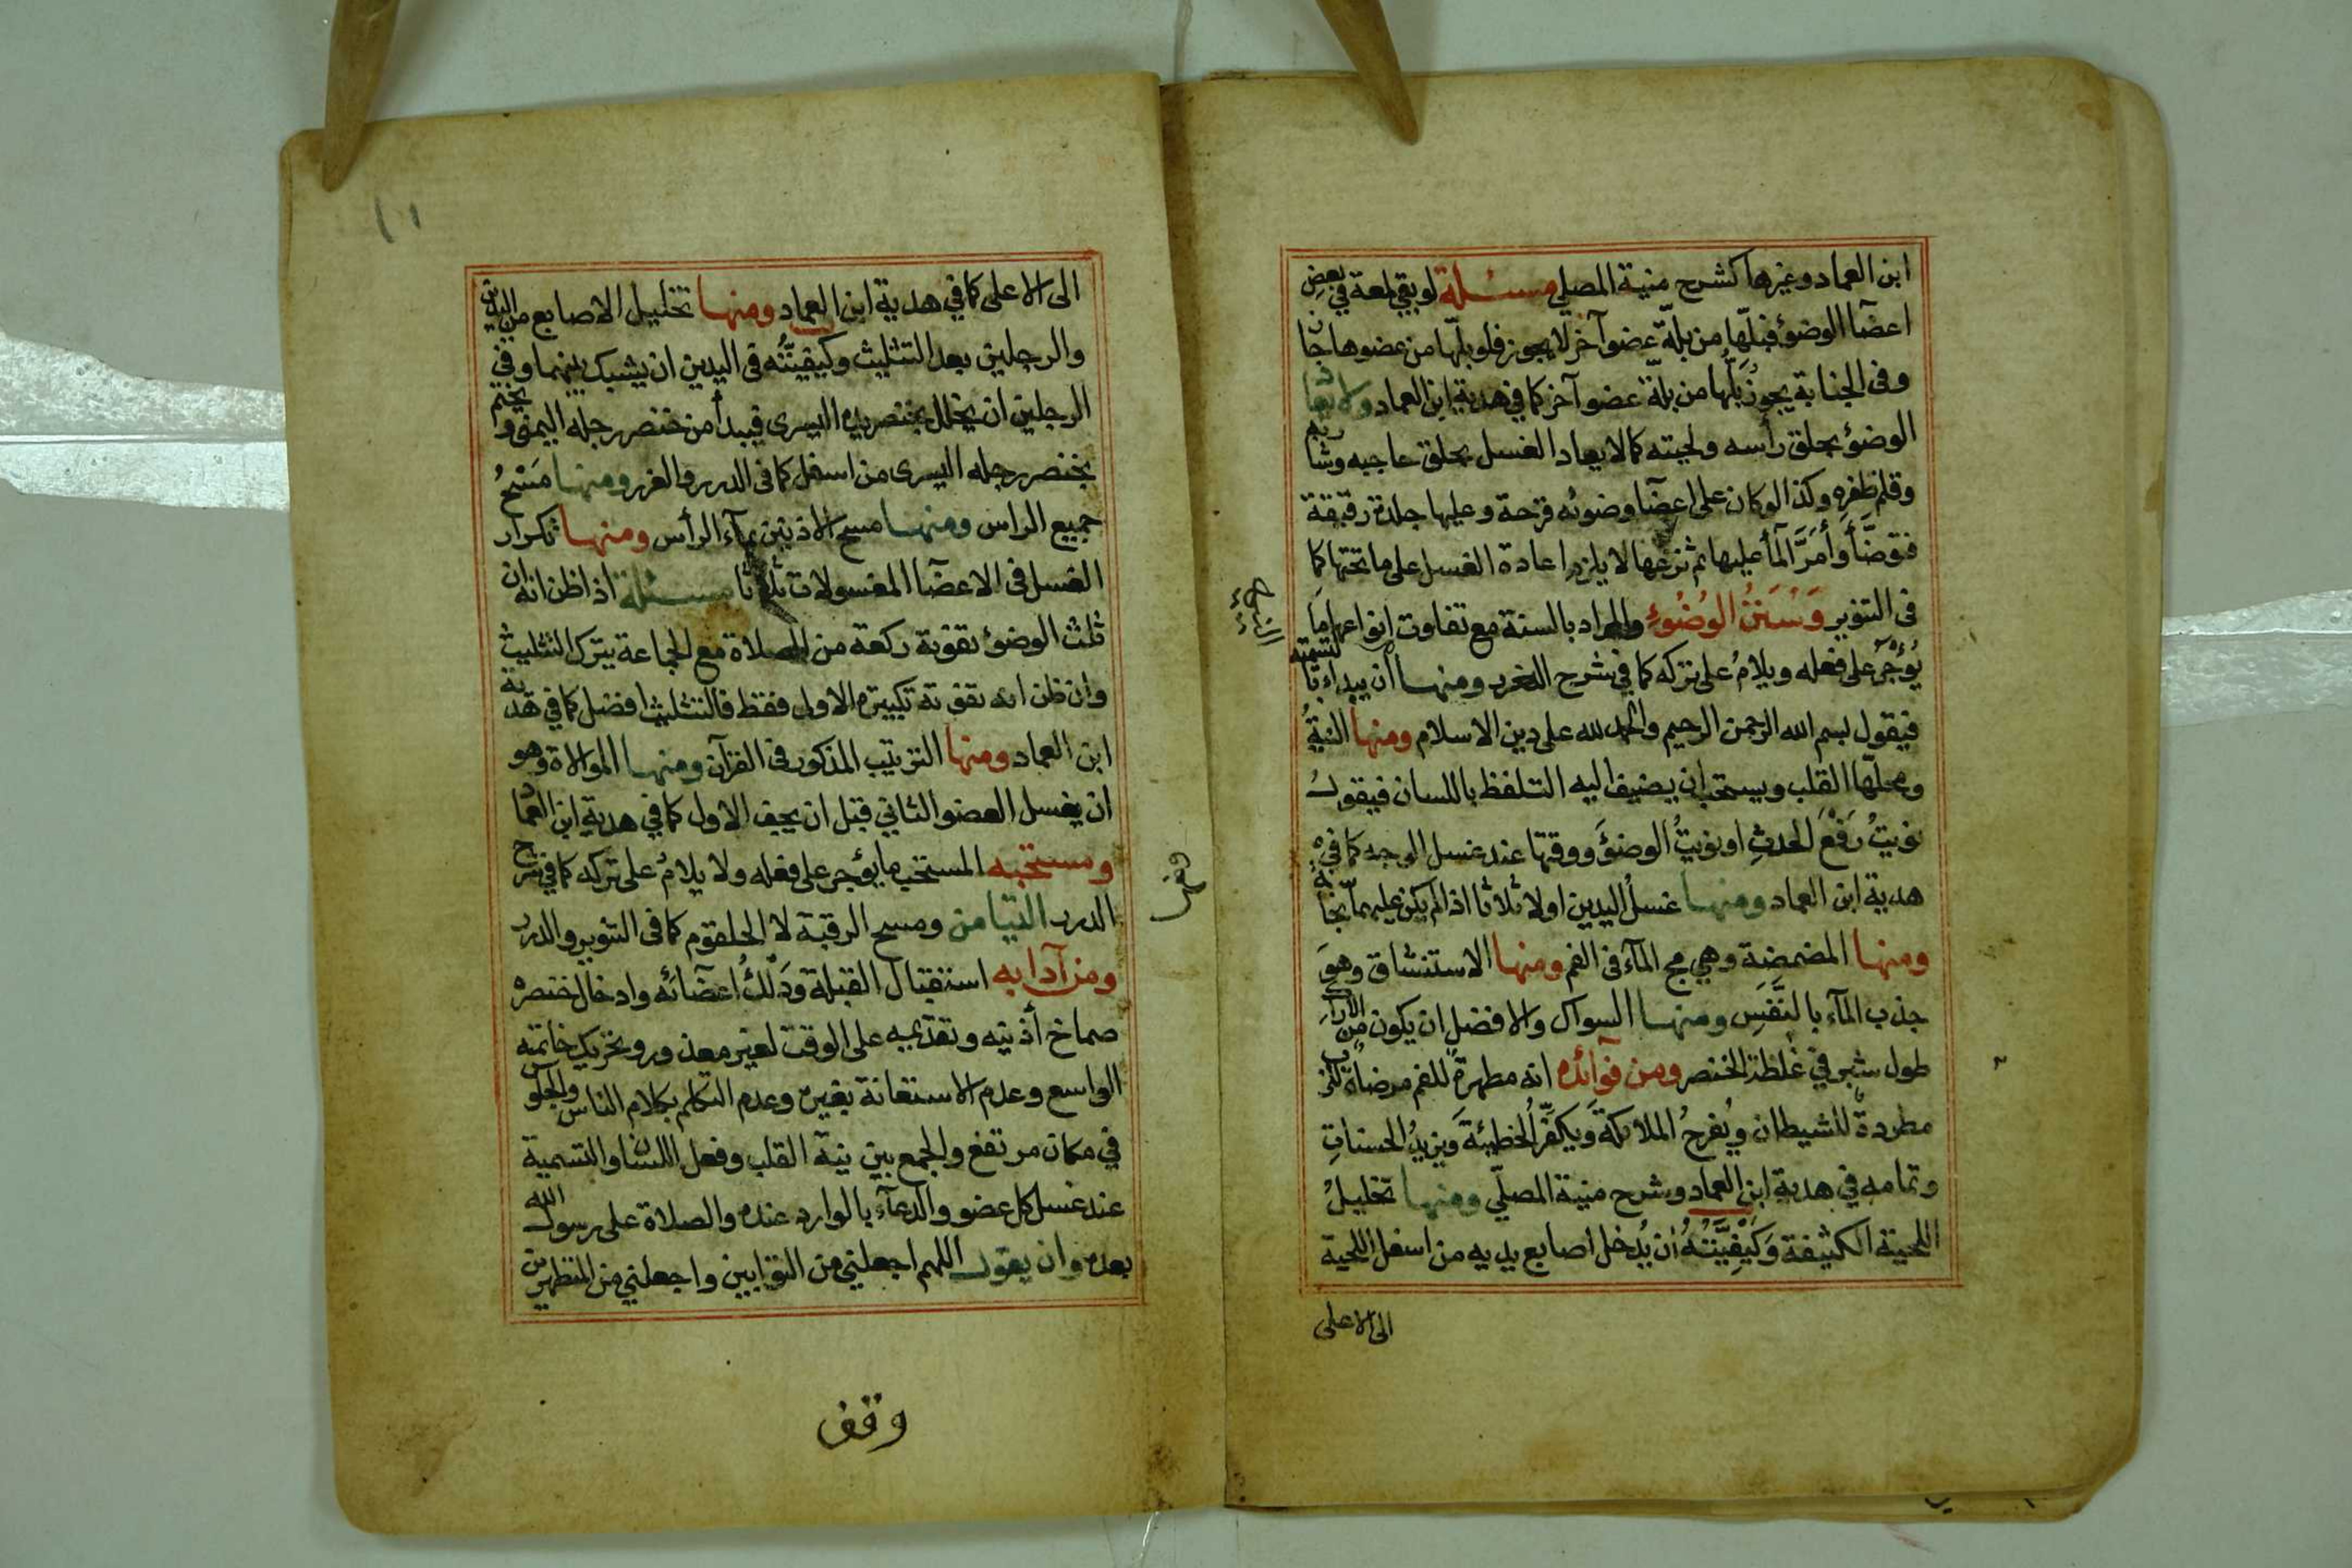 ابن العماد وغيرها كشرح منية المصلي مسئلة لو بقي لمعة في بعض
اعضآ الوضوء فبلّها من بلّة عضو آخر لا يجوز فلو بلّها من عضوها جاز
وفى الجنابة يجوز بَلُّها من بلّة عضو آخر كما في هدية ابن العماد ولا يعاد
الوضوء بحلق رأسه ولحيته كما لا يعاد الغسل بحلق حاجبه وشاربه
وقلم ظفره وكذا لو كان على اعضآ وضوئه قرحة وعليها جلدة رقيقة
فتوضَّأ وأمَرَّ المآ عليها ثم نزعها لا يلزم اعادة الغسل على ما تحتها كما
فى التنوير وَسُنَنُ الوُضُوءِ والمراد بالسنة مع تفاوت انواعها ما
يُؤْجَرُ على فعله ويلامُ على تركه كما في شرح الدرر ومنها أن يبداء بالتسمية
فيقول بسم الله الرحمن الرحيم والحمد لله على دين الاسلام ومنها النيةُ
ومحلّها القلب ويستحب ان يضيف اليه التلفظ باللسان فيقولُ
نويتُ رَفْعَ الحدثِ او نويتُ الوضوءَ ووقتها عند غسل الوجه كما في
هدية ابن العماد ومنها غسلُ اليدين اولا ثلاثا اذا لم يكن عليهما نجاسة
ومنها المضمضة وهي مج المآء فى الفم ومنها الاستنشاق وهوَ
جذب المآء بالنَّفَسِ ومنها السواك والافضل ان يكون من الاراك
طول شبر في غلظ الخنصر ومن فوآئده انه مطهرةٌ للفم مرضاةٌ للرب
مطردةٌ للشيطان ويُفرحُ الملائكةَ ويكفِّرُ الخطيئةَ ويزيدُ الحسناتِ
وتمامه في هدية ابن العماد وشرح منية المصلّي ومنها تخليلُ
اللحية الكثيفة وَكَيْفِيَّتُهُ أن يُدخل اصابع يديه من اسفل اللحية
الى الاعلى
الى الاعلى كما في هدية ابن العماد ومنها تخليل الاصابع من اليدين
والرجلين بعد التثليث وكيفيّتُه فى اليدين ان يشبك بينهما وفي
الرجلين ان يخلل بخنصر يده اليسرى فيبدأ من خنصر رجله اليمنى ويختم
بخنصر رجله اليسرى من اسفل كما فى الدرر والغرر ومنها مَسْحُ
جميع الراس ومنها مسح الاذنين بمآء الرأس ومنها تكرار
الغسل فى الاعضآ المغسولات ثلاثا مسئلة اذا ظن انه ان
ثلث الوضوء تفوته ركعة من الصلاة مع الجماعة يترك التثليث
وان ظن انه تفوته تكبيرة الاولى فقط فالتثليث افضل كما في هدية
ابن العماد ومنها الترتيب المذكور فى القرآن ومنها الموالاة وهو
ان يغسل العضو الثاني قبل ان يجف الاول كما في هدية ابن العماد
ومستحبه المستحب ما يؤجر على فعله ولا يلامُ على تركه كما في شرح
الدرر التيامن ومسح الرقبة لا الحلقوم كما فى التنوير والدرر
ومن آدابه استقبال القبلة وَدَلْكُ اعضآئه وادخال خنصره
صماخ أذنيه وتقديمه على الوقت لغير معذور وتحريك خاتمه
الواسع وعدم الاستعانة بغيره وعدم التكلم بكلام الناس والجلوس
في مكان مرتفع والجمع بين نية القلب وفعل اللسان والتسمية
عند غسل كل عضو والدعآء بالوارد عنده والصلاة على رسول الله
بعده وان يقول اللهم اجعلني من التوابين واجعلني من المتطهرين
وقف